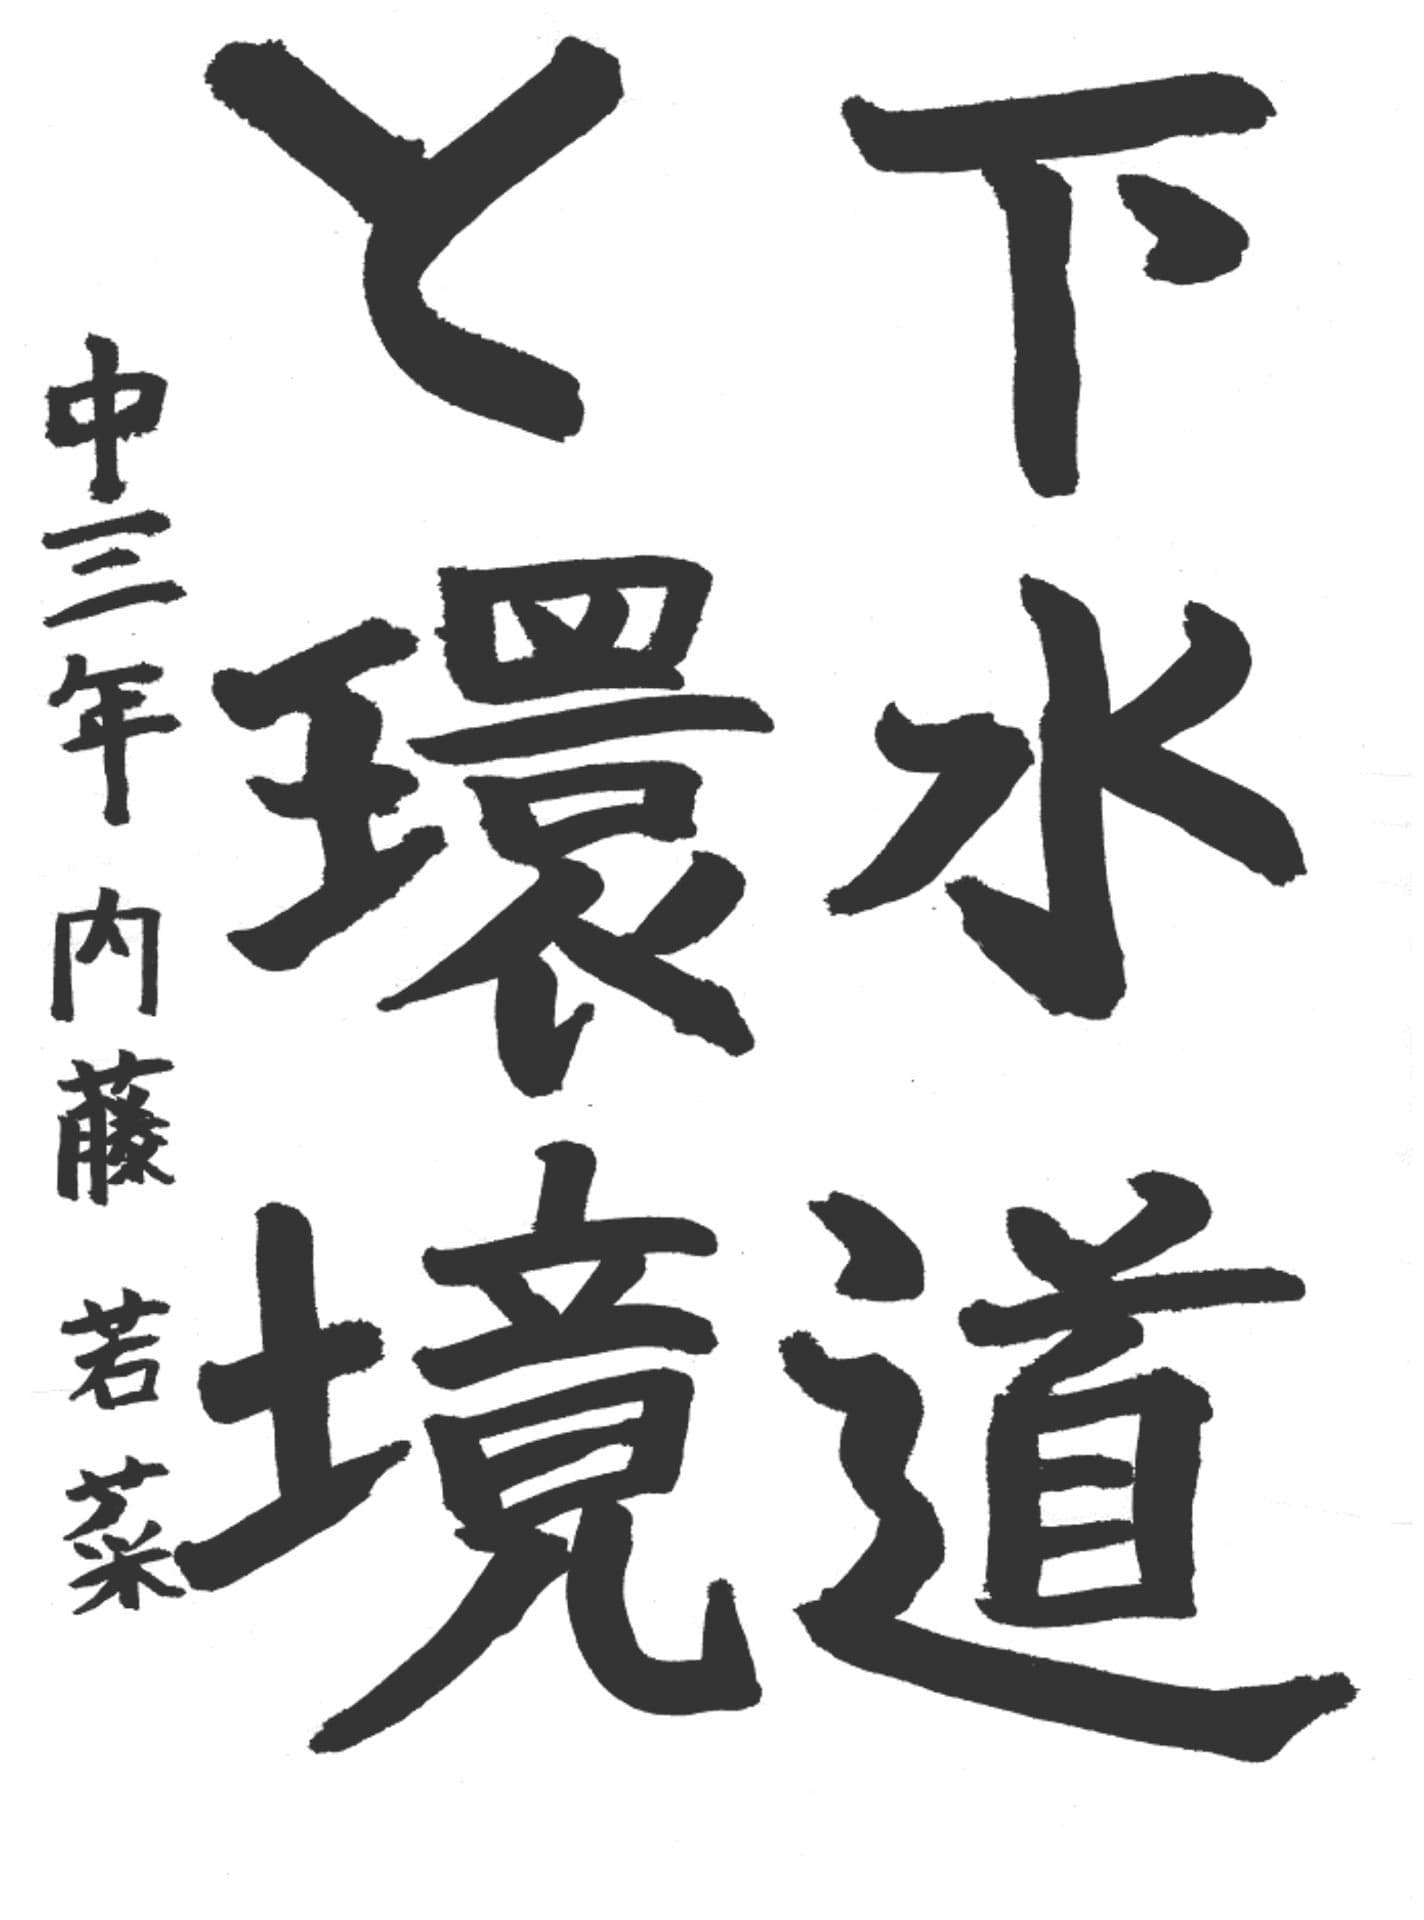 下水道
と環境
中三年 内藤 若菜